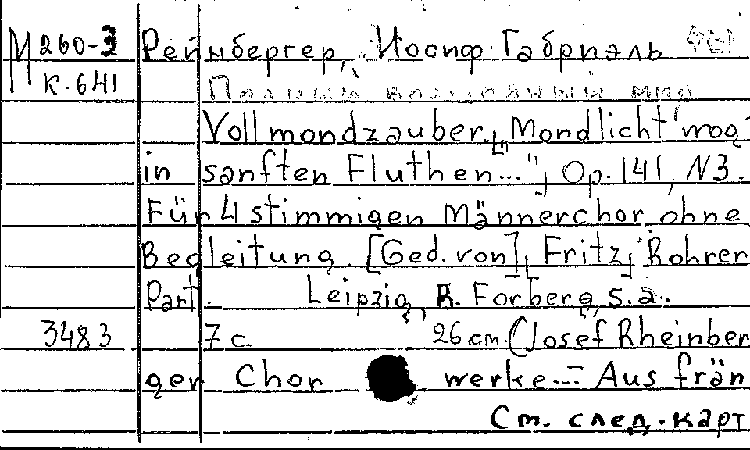 М 260-3 Рейнбергер, Иосиф Габриэль
К-641
Vollmondzauber. „Mondlicht wog
in sanften Fluthen...", Op. 141, N3.
Für 4 stimmigen Männerchor ohne
Begleitung. [Ged. von], Fritz, Rohrer
Part. Leipzig, R. Forberg, s.a.
3483 7 c. 26 cm. (Josef Rheinber
ger Chor werke... - Aus frän
См. след. карт